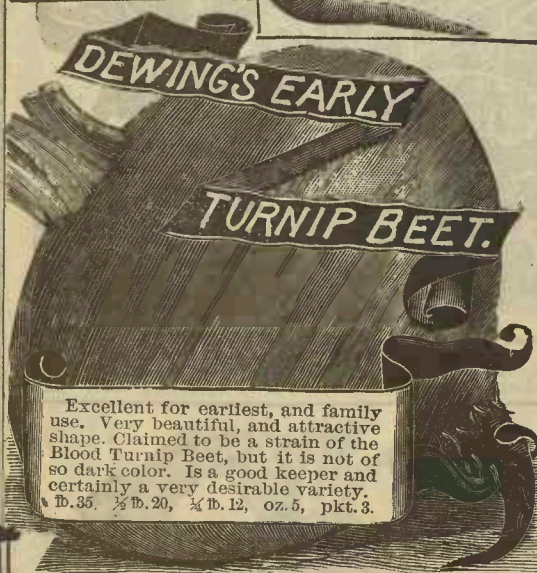 DEWING'S EARLY
TURNIP BEET.
Excellent for earliest, and family
use. Very beautiful, and attractive
shape. Claimed to be a strain of the
Blood Turnip Beet, but it is not of
so dark color. Is a good keeper and
certainly a very desirable variety.
℔.35, ½ ℔.20, ¼ ℔.12, oz.5, pkt.3.